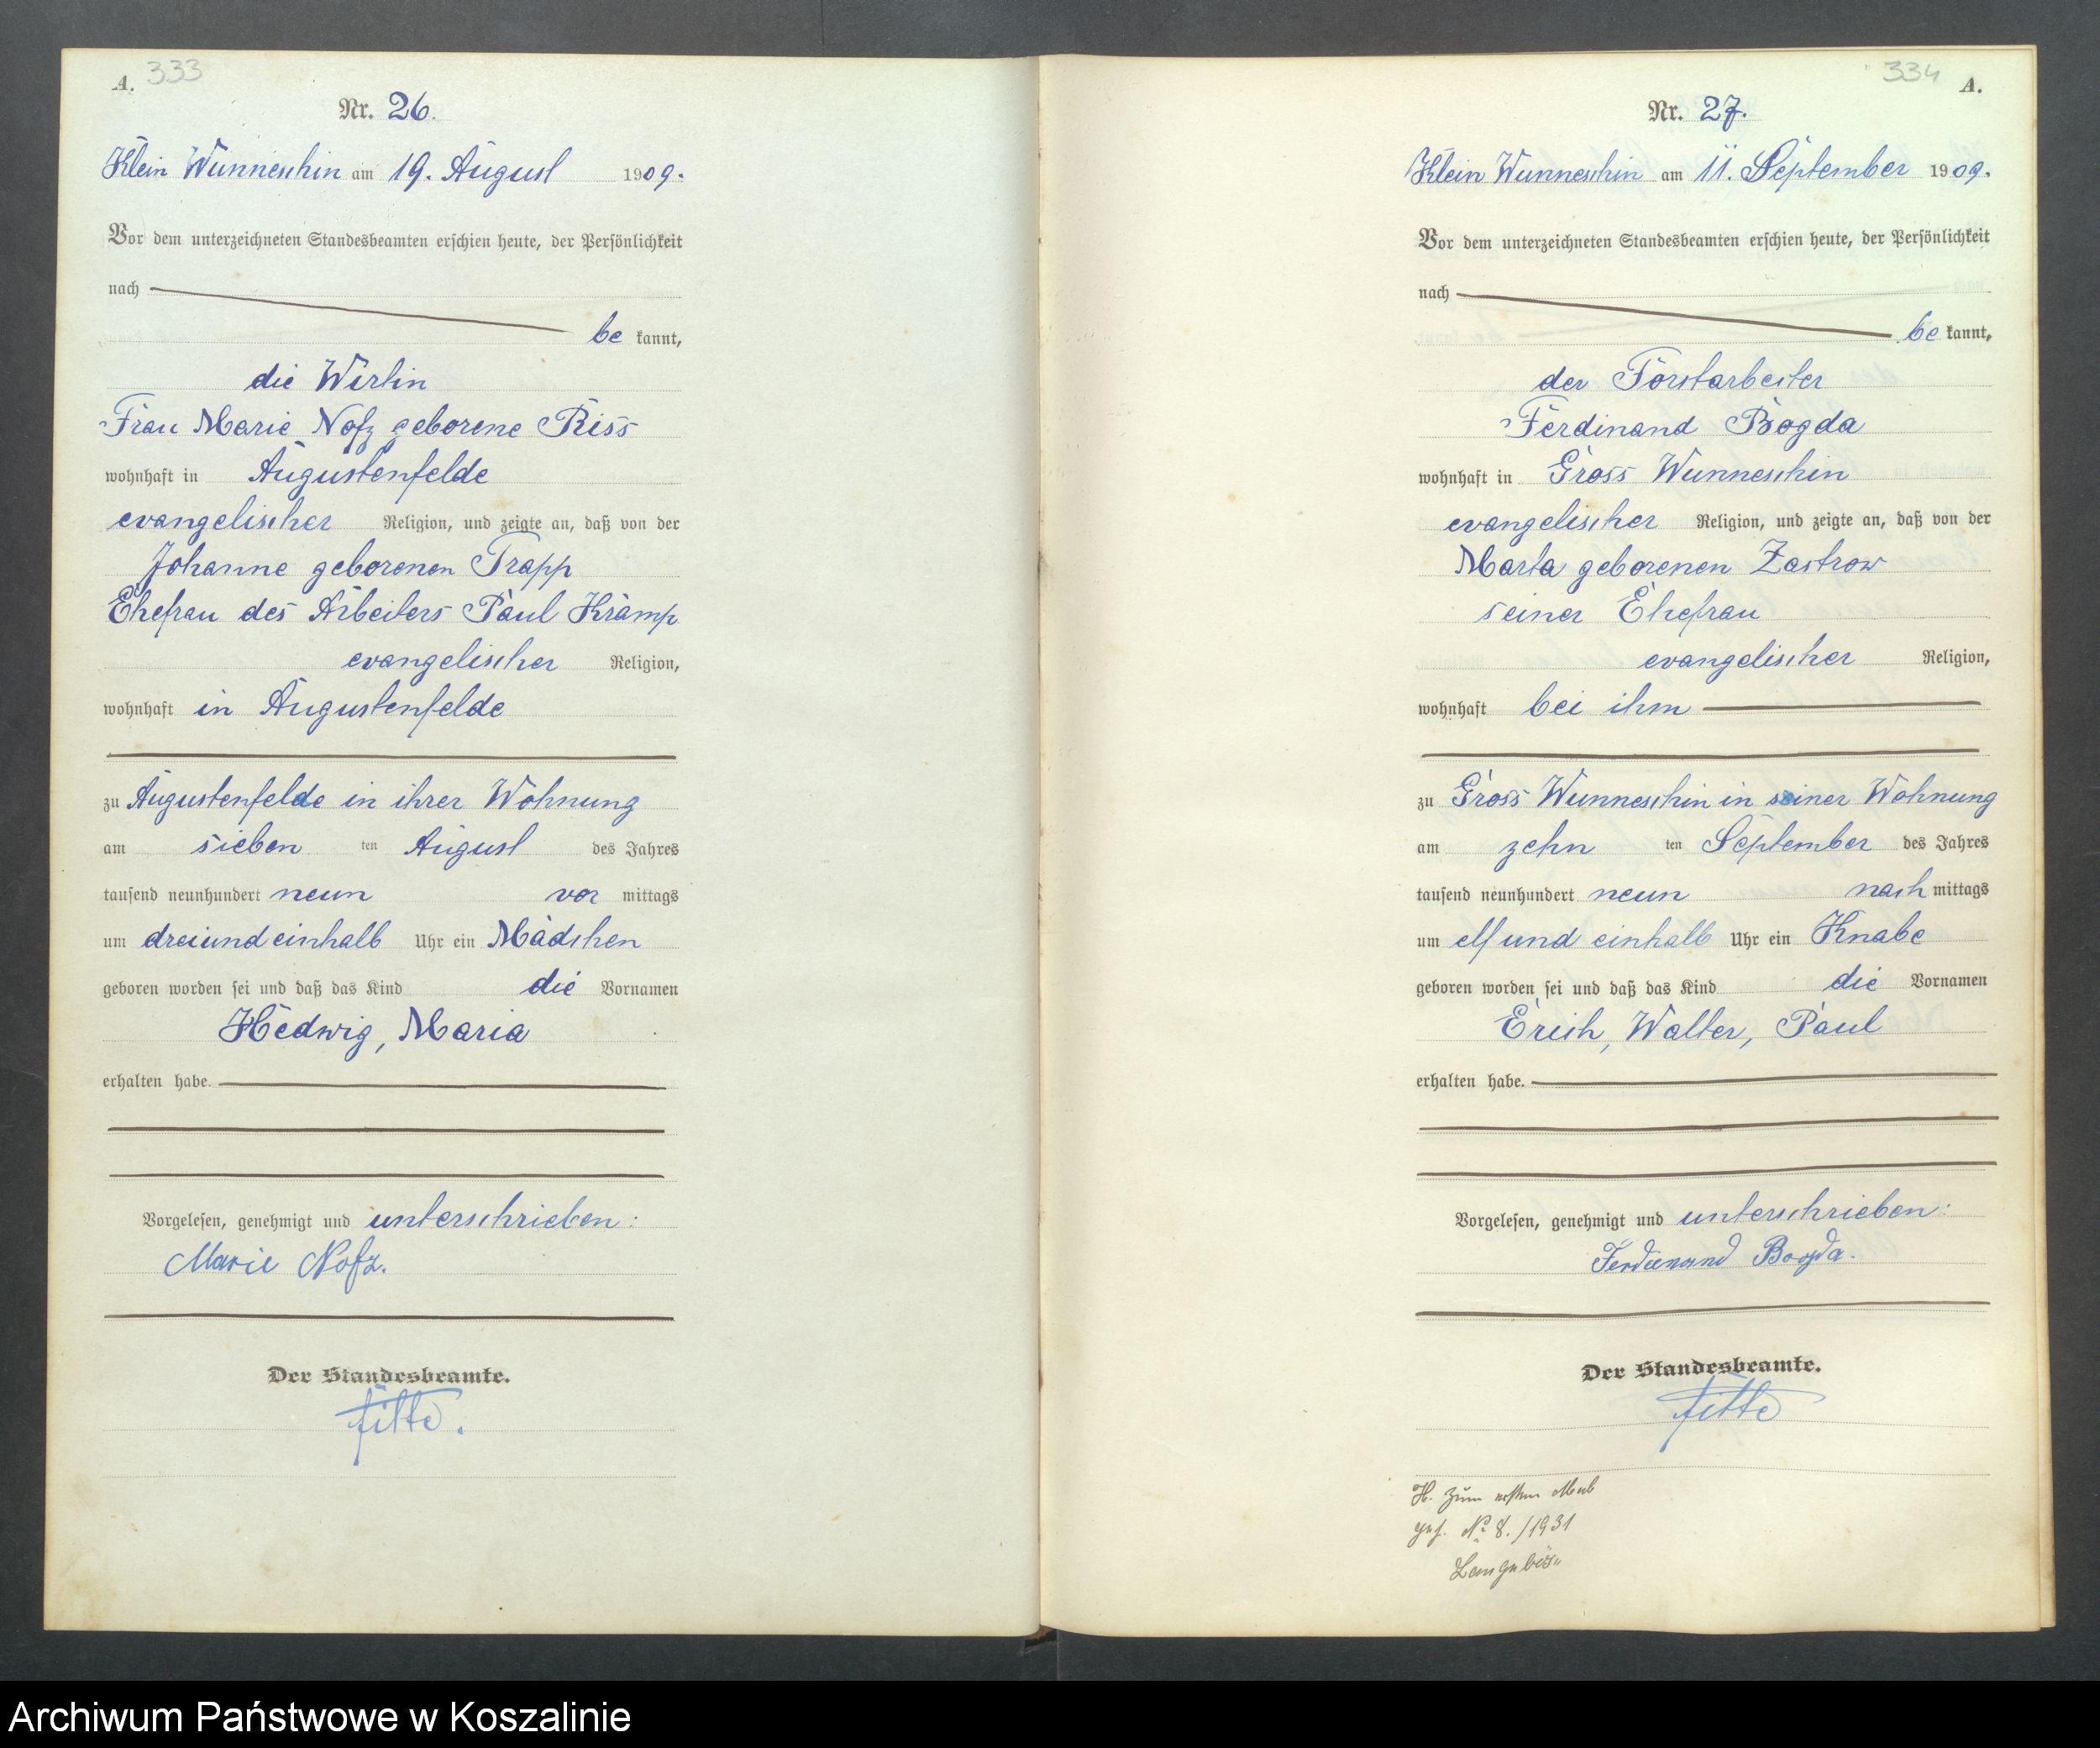 A. 333
Nr. 26.
Klein Wunneschin am 19. August 1909.
Vor dem unterzeichneten Standesbeamten erschien heute, der Persönlichkeit
nach
be kannt,
die Wirtin
Frau Marie Nofz geborene Riss
wohnhaft in Augustenfelde
evangelischer Religion, und zeigte an, daß von der
Johanne geborenen Trapp
Ehefrau des Arbeiters Paul Kramp
evangelischer Religion,
wohnhaft in Augustenfelde
zu Augustenfelde in ihrer Wohnung
am sieben ten August des Jahres
tausend neunhundert neun vor mittags
um dreiundeinhalb Uhr ein Mädchen
geboren worden sei und daß das Kind die Vornamen
Hedwig, Maria
erhalten habe.
Vorgelesen, genehmigt und unterschrieben:
Marie Nofz.
Der Standesbeamte.
334 A.
Nr. 27.
Klein Wunneschin am 11. September 1909.
Vor dem unterzeichneten Standesbeamten erschien heute, der Persönlichkeit
nach
be kannt,
der Forstarbeiter
Ferdinand Bogda
wohnhaft in Gross Wunneschin
evangelischer Religion, und zeigte an, daß von der
Marta geborenen Zastrow
seiner Ehefrau
evangelischer Religion,
wohnhaft bei ihm
zu Gross Wunneschin in seiner Wohnung
am zehn ten September des Jahres
tausend neunhundert neun nach mittags
um elf und einhalb Uhr ein Knabe
geboren worden sei und daß das Kind die Vornamen
Erich, Walter, Paul
erhalten habe.
Vorgelesen, genehmigt und unterschrieben:
Ferdinand Bogda.
Der Standesbeamte.
H. zum ersten Mal
geh. No 8./1931
Langeböse
Archiwum Państwowe w Koszalinie